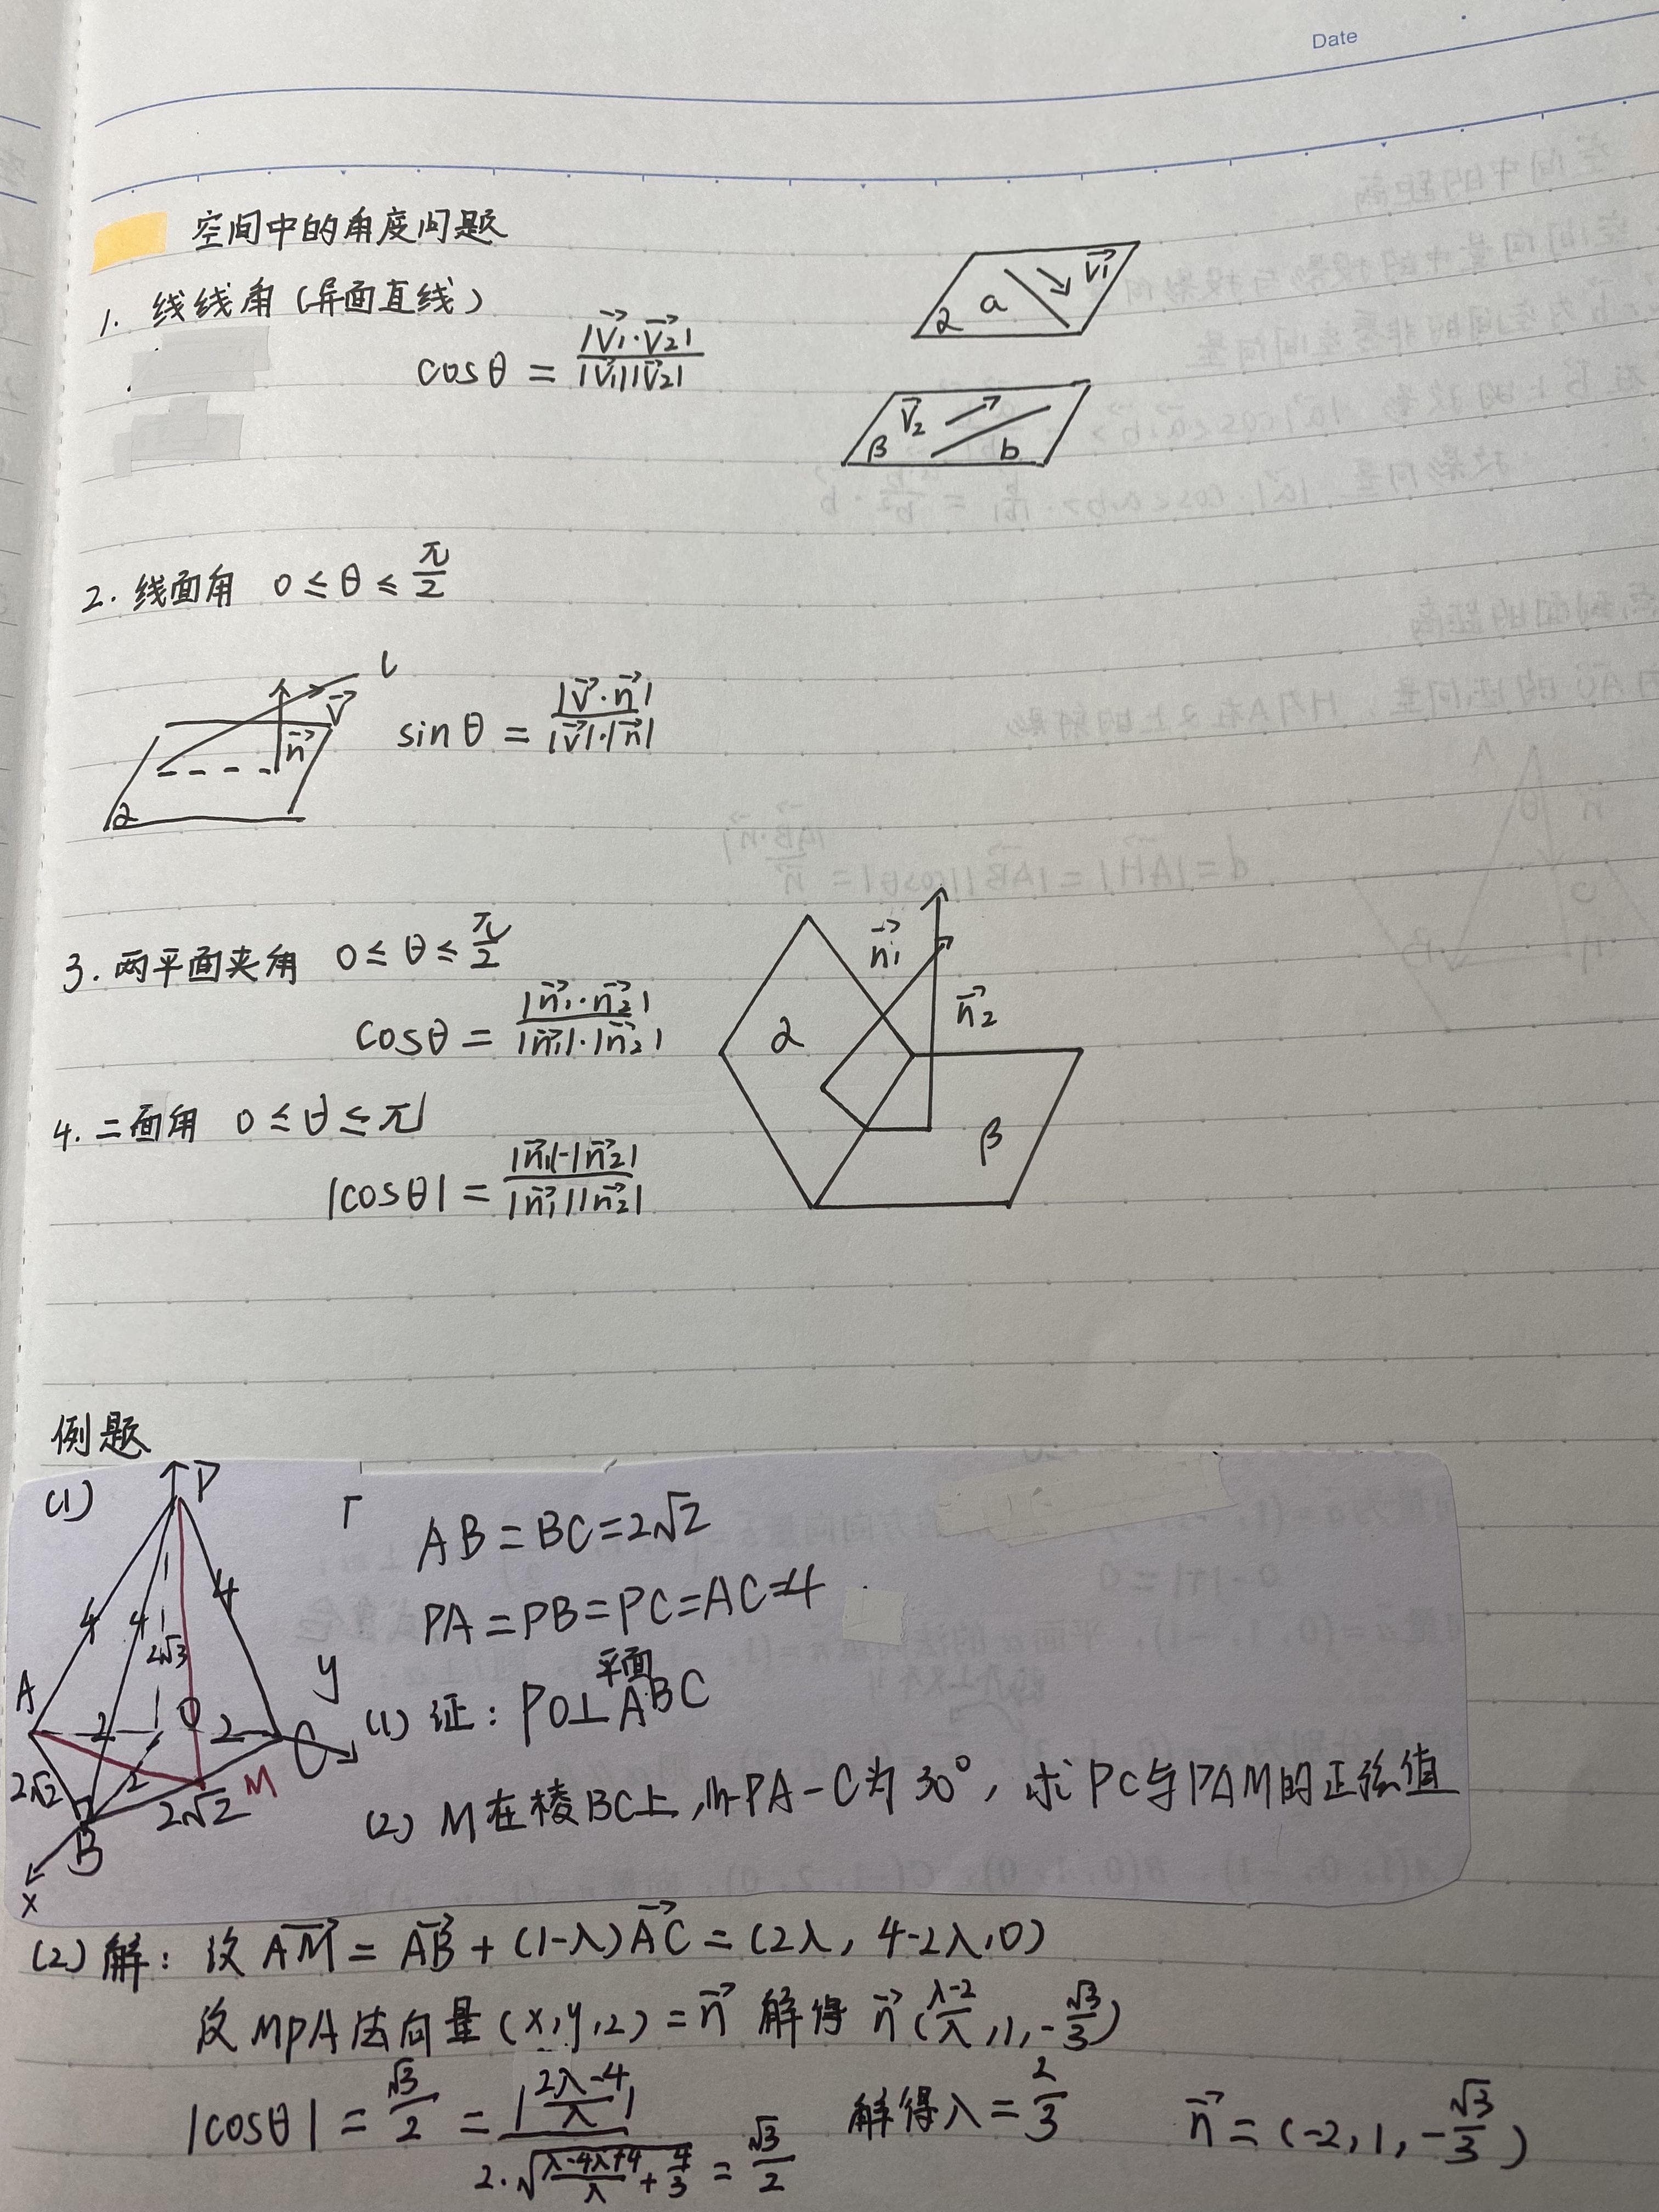 Date
空间中的角度问题
1. 线线角（异面直线）
cosθ = |v₁⃗·v₂⃗| / |v₁⃗||v₂⃗|
a v₁⃗
α
v₂⃗
β b
2. 线面角 0 ≤ θ ≤ π/2
l
v⃗
n⃗
α
sinθ = |v⃗·n⃗| / |v⃗|·|n⃗|
3. 两平面夹角 0 ≤ θ ≤ π/2
cosθ = |n₁⃗·n₂⃗| / |n₁⃗|·|n₂⃗|
n₁⃗
n₂⃗
α
β
4. 二面角 0 ≤ θ ≤ π
|cosθ| = |n₁⃗|·|n₂⃗| / |n₁⃗||n₂⃗|
例题
(1)
P
4 4 4
2√3
A 2 O 2 C y
2√2 2 M
B 2√2
x
AB=BC=2√2
PA=PB=PC=AC=4
(1) 证: PO⊥平面ABC
(2) M在棱BC上, M-PA-C为30°, 求PC与PAM的正弦值
(2) 解: 设AM⃗ = AB⃗ + (1-λ)AC⃗ = (2λ, 4-2λ, 0)
设MPA法向量(x,y,z)=n⃗ 解得 n⃗ ((λ-2)/λ, 1, -√3/3)
|cosθ| = √3/2 = |(2λ-4)/λ| / 2·√((λ-4λ+4)/λ + 4/3) = √3/2 解得λ = 2/3 n⃗ = (-2, 1, -√3/3)